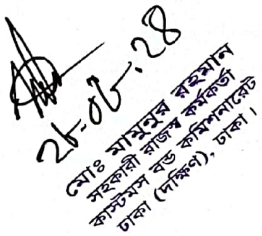 ২৮-০৮-২৪
মোঃ মামুনুর রহমান
সহকারী রাজস্ব কর্মকর্তা
কাস্টমস বন্ড কমিশনারেট
ঢাকা (দক্ষিণ), ঢাকা।